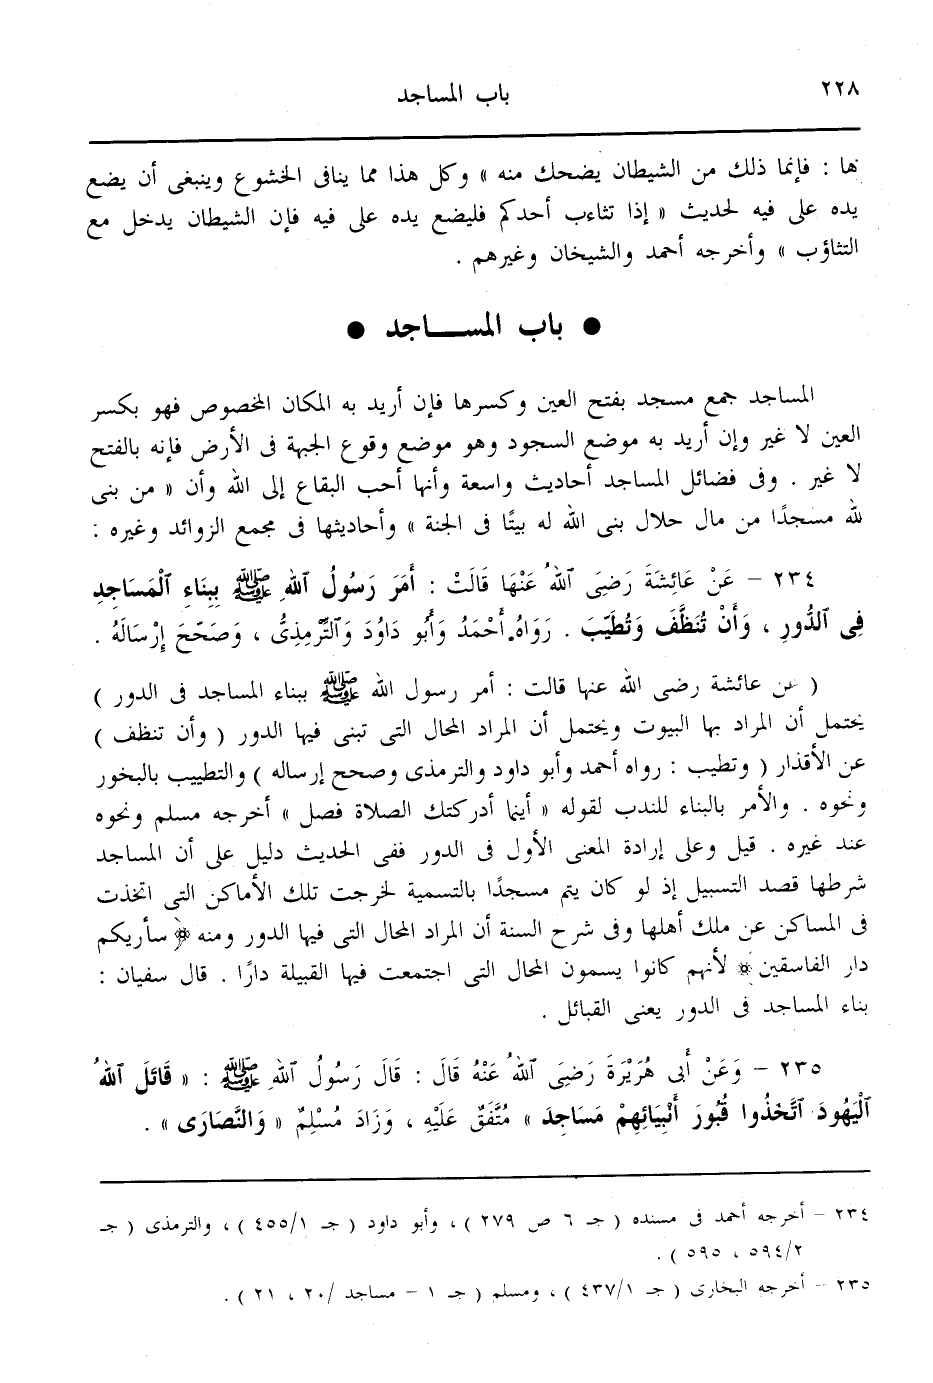 ٢٢٨
باب المساجد
ها : فإنما ذلك من الشيطان يضحك منه » وكل هذا مما ينافى الخشوع وينبغى أن يضع
يده على فيه لحديث « إذا تثاءب أحدكم فليضع يده على فيه فإن الشيطان يدخل مع
التثاؤب » وأخرجه أحمد والشيخان وغيرهم .
● باب المســـاجد ●
المساجد جمع مسجد بفتح العين وكسرها فإن أريد به المكان المخصوص فهو بكسر
العين لا غير وإن أريد به موضع السجود وهو موضع وقوع الجبهة فى الأرض فإنه بالفتح
لا غير . وفى فضائل المساجد أحاديث واسعة وأنها أحب البقاع إلى الله وأن « من بنى
لله مسجدًا من مال حلال بنى الله له بيتًا فى الجنة » وأحاديثها فى مجمع الزوائد وغيره :
٢٣٤ – عَنْ عَائِشَةَ رَضِىَ ٱللهُ عَنْهَا قَالَتْ : أَمَرَ رَسُولُ ٱللهِ ﷺ بِبِنَاءِ ٱلْمَسَاجِدِ
فِى ٱلدُّورِ ، وَأَنْ تُنَظَّفَ وَتُطَيَّبَ . رَوَاهُ أَحْمَدُ وَأَبُو دَاوُدَ وَٱلتِّرْمِذِىُّ ، وَصَحَّحَ إِرْسَالَهُ .
( عن عائشة رضى الله عنها قالت : أمر رسول الله ﷺ ببناء المساجد فى الدور )
يحتمل أن المراد بها البيوت ويحتمل أن المراد المحال التى تبنى فيها الدور ( وأن تنظف )
عن الأقذار ( وتطيب : رواه أحمد وأبو داود والترمذى وصحح إرساله ) والتطييب بالبخور
ونحوه . والأمر بالبناء للندب لقوله « أينما أدركتك الصلاة فصل » أخرجه مسلم ونحوه
عند غيره . قيل وعلى إرادة المعنى الأول فى الدور ففى الحديث دليل على أن المساجد
شرطها قصد التسبيل إذ لو كان يتم مسجدًا بالتسمية لخرجت تلك الأماكن التى اتخذت
فى المساكن عن ملك أهلها وفى شرح السنة أن المراد المحال التى فيها الدور ومنه ﴿ سأريكم
دار الفاسقين ﴾ لأنهم كانوا يسمون المحال التى اجتمعت فيها القبيلة دارًا . قال سفيان :
بناء المساجد فى الدور يعنى القبائل .
٢٣٥ – وَعَنْ أَبِى هُرَيْرَةَ رَضِىَ ٱللهُ عَنْهُ قَالَ : قَالَ رَسُولُ ٱللهِ ﷺ : « قَاتَلَ ٱللهُ
ٱلْيَهُودَ ٱتَّخَذُوا قُبُورَ أَنْبِيَائِهِمْ مَسَاجِدَ » مُتَّفَقٌ عَلَيْهِ ، وَزَادَ مُسْلِمٌ « وَالنَّصَارَى » .
٢٣٤ – أخرجه أحمد فى مسنده ( جـ ٦ ص ٢٧٩ ) ، وأبو داود ( جـ ٤٥٥/١ ) ، والترمذى ( جـ
٥٩٤/٢ ، ٥٩٥ ) .
٢٣٥ – أخرجه البخارى ( جـ ٤٣٧/١ ) ، ومسلم ( جـ ١ – مساجد /٢٠ ، ٢١ ) .